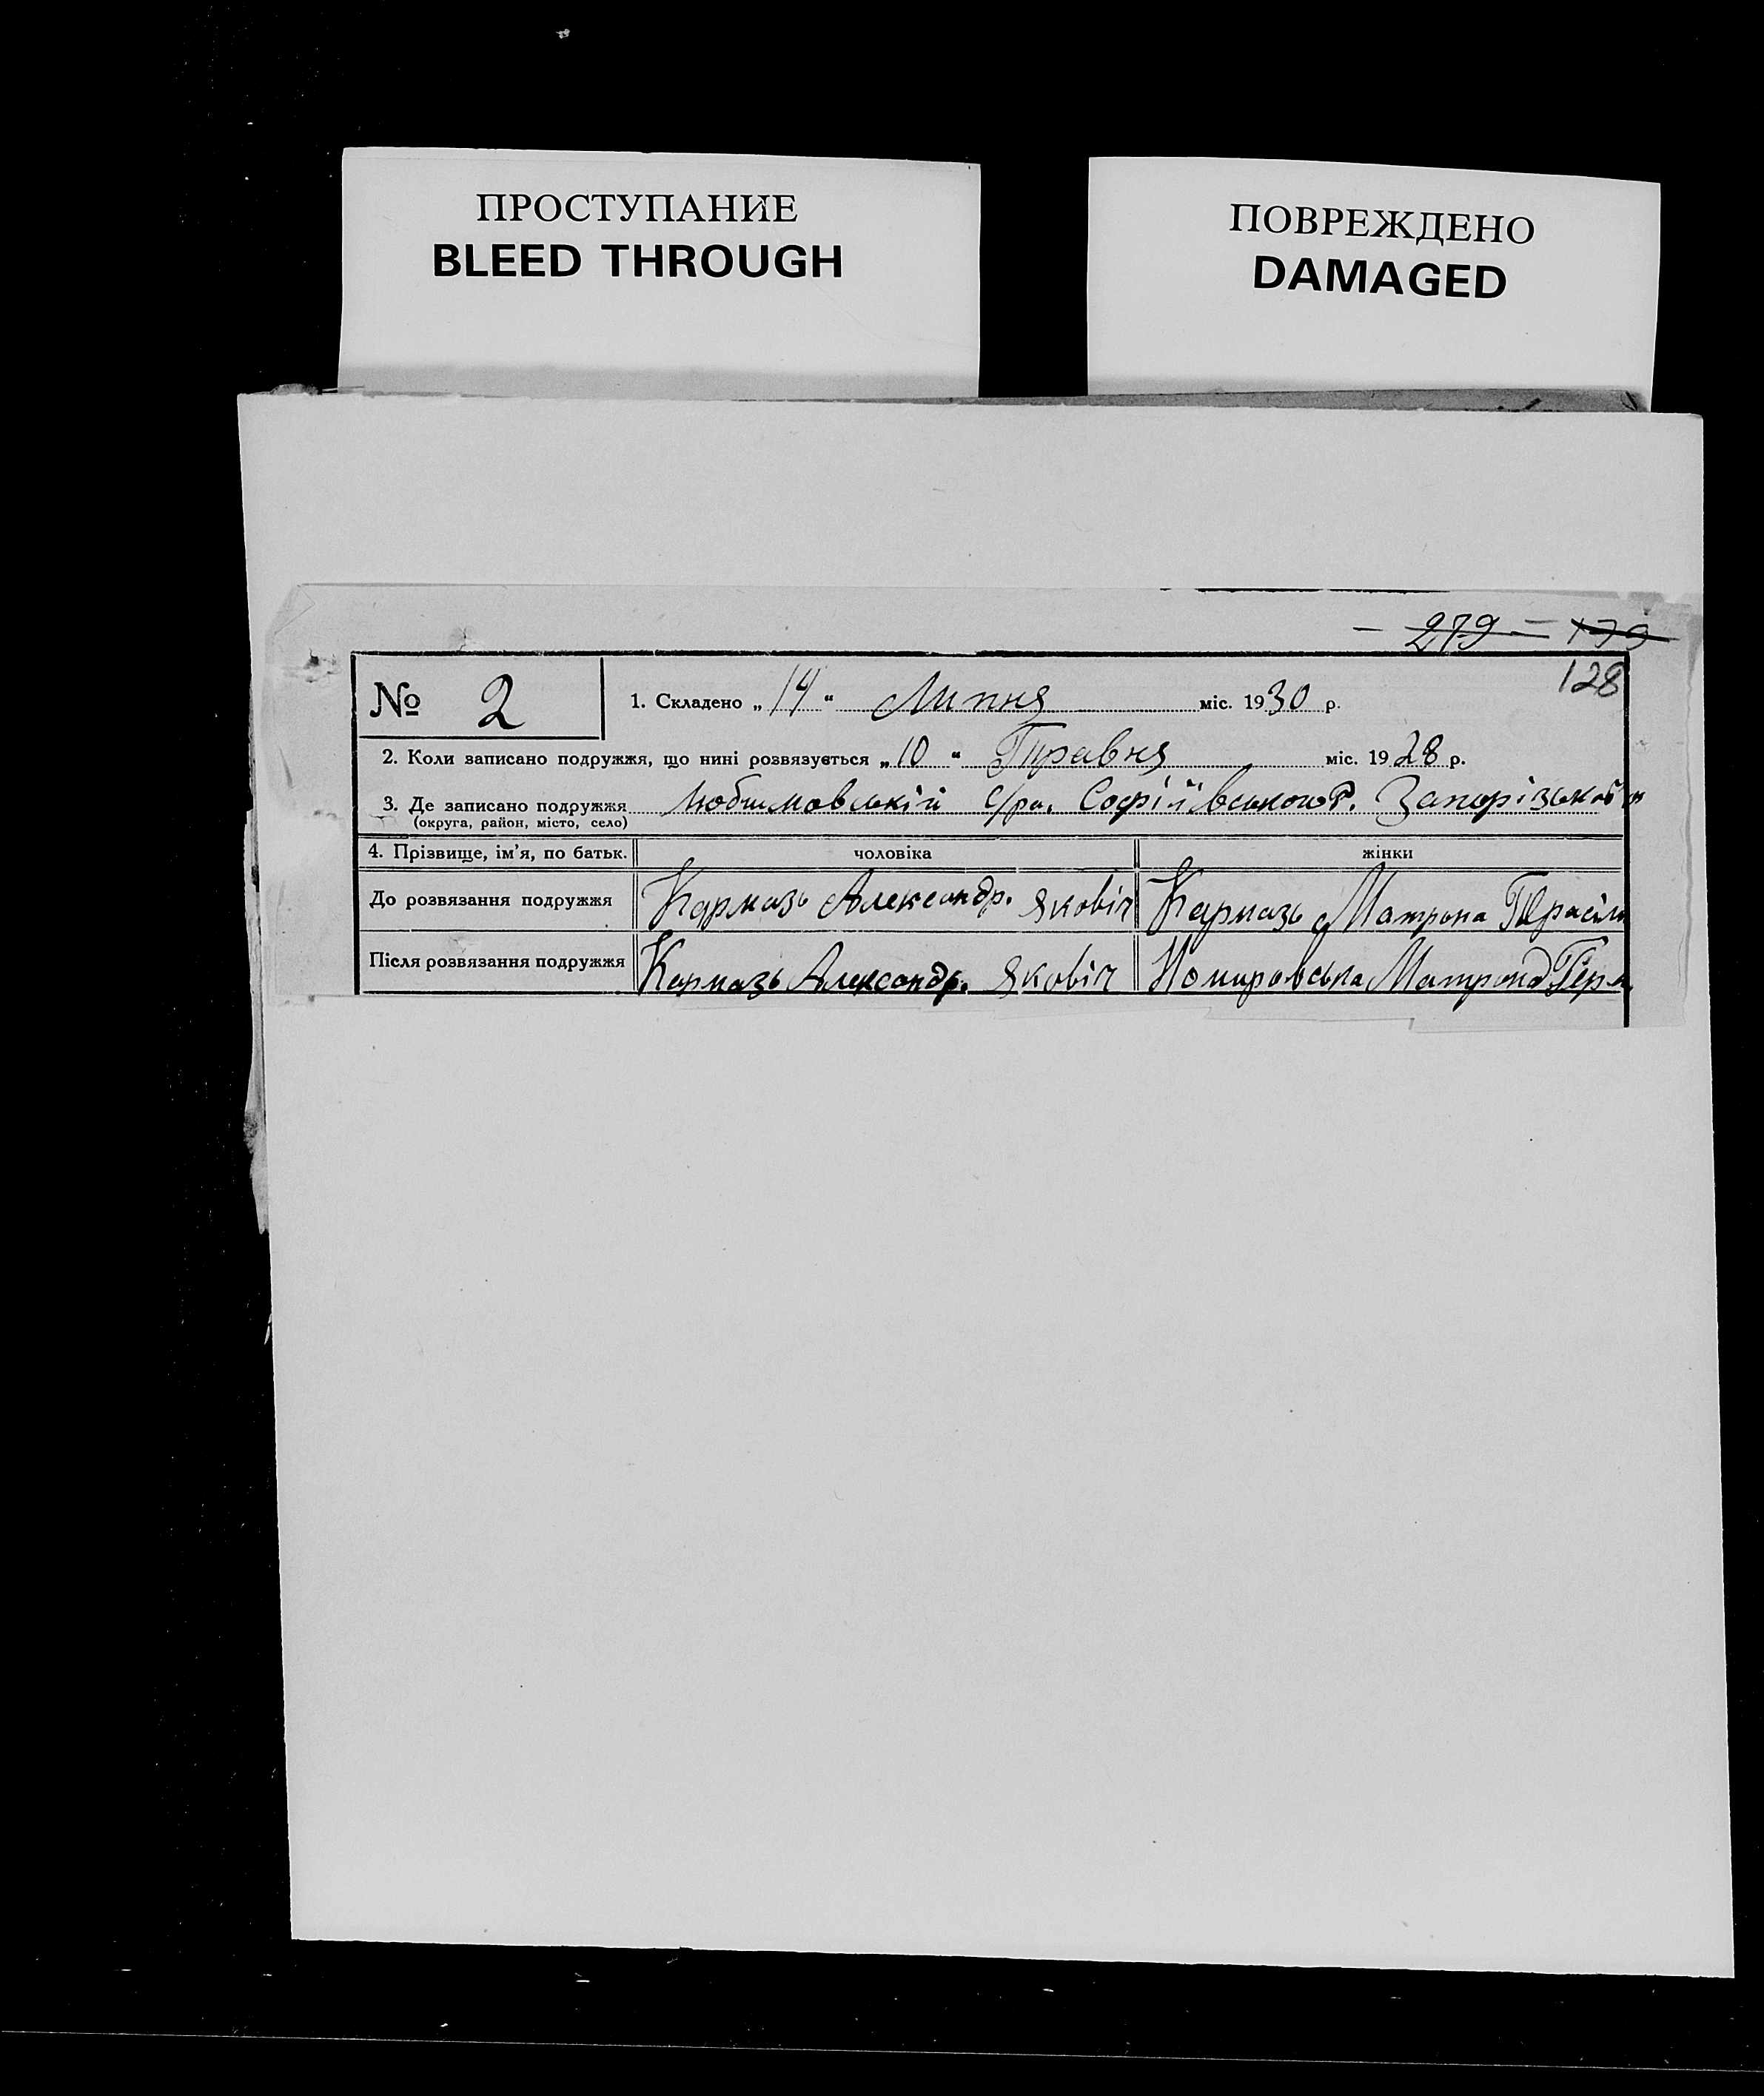 ПРОСТУПАНИЕ
BLEED THROUGH
ПОВРЕЖДЕНО
DAMAGED
— 279 — 179
128
№ 2
1. Складено „ 14 “ Липня міс. 1930 р.
2. Коли записано подружжя, що нині розвязується „ 10 “ Травня міс. 1928 р.
3. Де записано подружжя Любимовській с/ра. Софіївського Р. Запорізької
(округа, район, місто, село)
4. Прізвище, ім’я, по батьк. чоловіка жінки
До розвязання подружжя Кармазь Александр. Яковіч Кармазь Матрона
Після розвязання подружжя Кармазь Александр. Яковіч Матрона